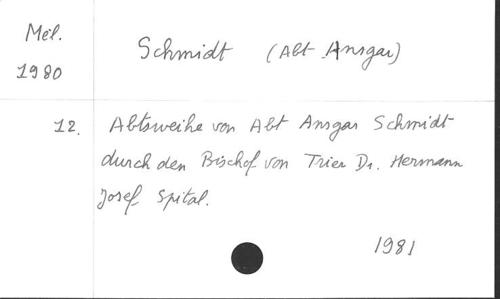 Mél.
1980
Schmidt (Abt Ansgar)
12. Abtsweihe von Abt Ansgar Schmidt
durch den Bischof von Trier Dr. Hermann
Josef Spital.
1981